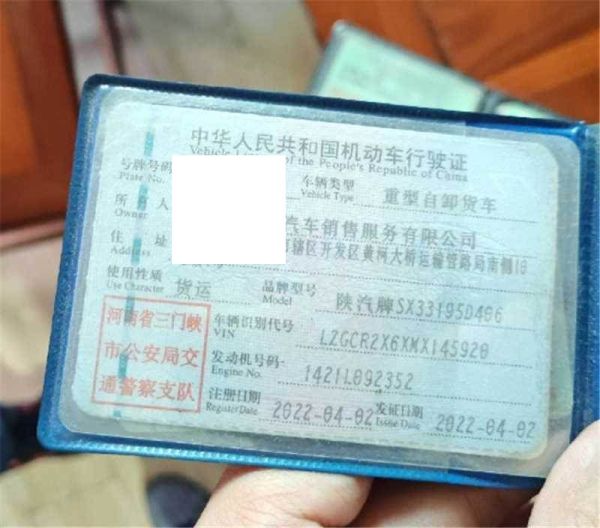 中华人民共和国机动车行驶证
Vehicle of the People's Republic of China
号牌号码 车辆类型 重型自卸货车
Plate No. Vehicle Type
所有人 汽车销售服务有限公司
Owner
住址 辖区开发区黄河大桥运输管路局南侧10
Address
使用性质 货运 品牌型号 陕汽牌SX33195D406
Use Character Model
河南省三门峡
市公安局交
通警察支队
车辆识别代号 LZGCR2X6XMX145920
VIN
发动机号码 1421L092352
Engine No.
注册日期 2022-04-02 发证日期 2022-04-02
Register Date Issue Date